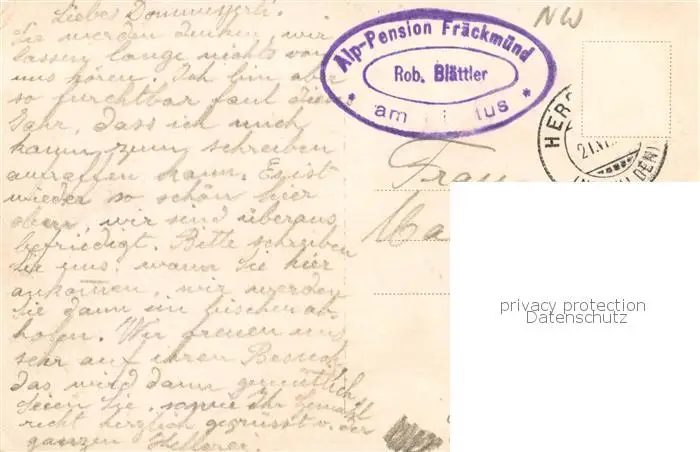 Liebes Dommesserli.
Sie werden denken, wir
lassen lange nichts von
uns hören. Ich bin aber
so furchtbar faul dieses
Jahr, dass ich mich
kaum zum schreiben
aufraffen kann. Es ist
wieder so schön hier
oben, wir sind überaus
befriedigt. Bitte schreiben
Sie uns wann Sie hier
ankommen, wir werden
Sie dann in
holen. Wir freuen uns
sehr auf ihren Besuch,
das wird dann gemütlich.
Seien Sie, sowie Ihr Gemahl
recht herzlich gegrüsst v. der
ganzen
NW
Alp-Pension Fräckmünd
Rob. Blättler
* am us *
HER
21.VI
DEN)
Frau
Ma
privacy protection
Datenschutz